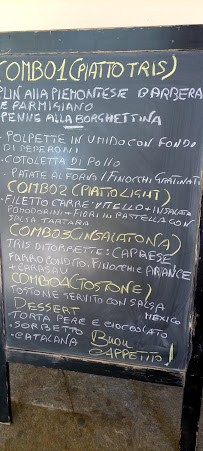 COMBO 1 (PIATTO TRIS)
PLIN ALLA PIEMONTESE BARBERA
E PARMIGIANO
PENNE ALLA BORGHETTINA
- POLPETTE IN UMIDO CON FONDO
DI PEPERONI
- COTOLETTA DI POLLO
- PATATE AL FORNO / FINOCCHI GRATINATI
COMBO 2 (PIATTO LIGHT)
FILETTO CARRE' VITELLO + INSALATA
POMODORINI + FIORI IN PASTELLA CON
SALSA TARTARA
COMBO 3 (INSALATONA)
TRIS DI TORRETTE: CAPRESE
FARRO CONDITO, FINOCCHI E ARANCE
+ CARASAU
COMBO 4 (TOSTONE)
TOSTONE SERVITO CON SALSA
MEXICO
DESSERT
TORTA PERE E CIOCCOLATO
- SORBETTO
- CATALANA BUON
APPETITO!